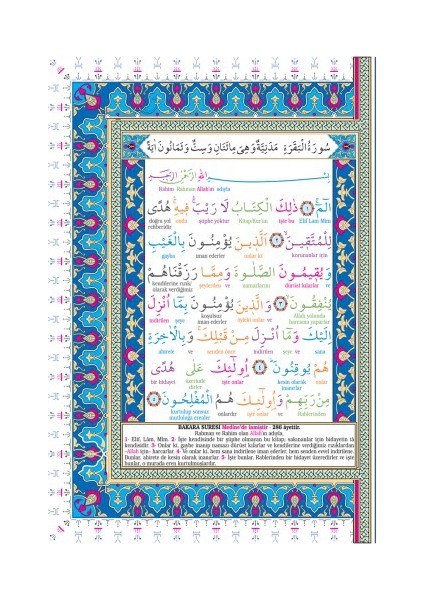 سُورَةُ الْبَقَرَةِ مَدَنِيَّةٌ وَهِيَ مِائَتَانِ وَسِتٌّ وَثَمَانُونَ اٰيَةً
بِسْمِ اللّٰهِ الرَّحْمٰنِ الرَّحِيمِ
Rahim Rahman Allah'ın adıyla
الٓمٓ ١ ذٰلِكَ الْكِتَابُ لَا رَيْبَ فِيهِ هُدًى
doğru yol rehberidir onda şüphe yoktur Kitap/Kur'an işte bu Elif Lam Mim
لِلْمُتَّقِينَ ٢ اَلَّذِينَ يُؤْمِنُونَ بِالْغَيْبِ
gayba iman ederler onlar ki korunanlar için
وَيُقِيمُونَ الصَّلٰوةَ وَمِمَّا رَزَقْنَاهُمْ
kendilerine rızık olarak verdiğimiz şeylerden ve namazlarını dosdoğru kılarlar ve
يُنْفِقُونَ ٣ وَالَّذِينَ يُؤْمِنُونَ بِمَٓا اُنْزِلَ
indirilen şeye iman ederler ve Allah yolunda harcama yaparlar
اِلَيْكَ وَمَٓا اُنْزِلَ مِنْ قَبْلِكَ وَبِالْاٰخِرَةِ
ahirete ve senden önce indirilen şeye ve sana
هُمْ يُوقِنُونَ ٤ اُو۬لٰٓئِكَ عَلٰى هُدًى
bir hidayet üzeredir işte onlar kesin olarak inanırlar onlar
مِنْ رَبِّهِمْ وَاُو۬لٰٓئِكَ هُمُ الْمُفْلِحُونَ ٥
kurtulup sonsuz mutluluğa erenler onlardır işte onlar ve Rablerinden
BAKARA SURESİ Medine'de inmiştir - 286 âyettir.
Rahman ve Rahim olan Allah'ın adıyla.
1- Elif, Lâm, Mim. 2- İşte kendisinde bir şüphe olmayan bu kitap; sakınanlar için hidayetin tâ
kendisidir. 3- Onlar ki, gaybe inanıp namazı dürüst kılarlar ve kendilerine verdiğimiz rızıklardan
-Allah için- harcarlar. 4- Ve onlar ki, hem sana indirilene iman ederler, hem senden evvel indirilene.
Bunlar, ahirete de kesin olarak inanırlar. 5- İşte bunlar, Rablerinden bir hidayet üzeredirler ve işte
bunlar, o murada eren kurtulmuşlardır.